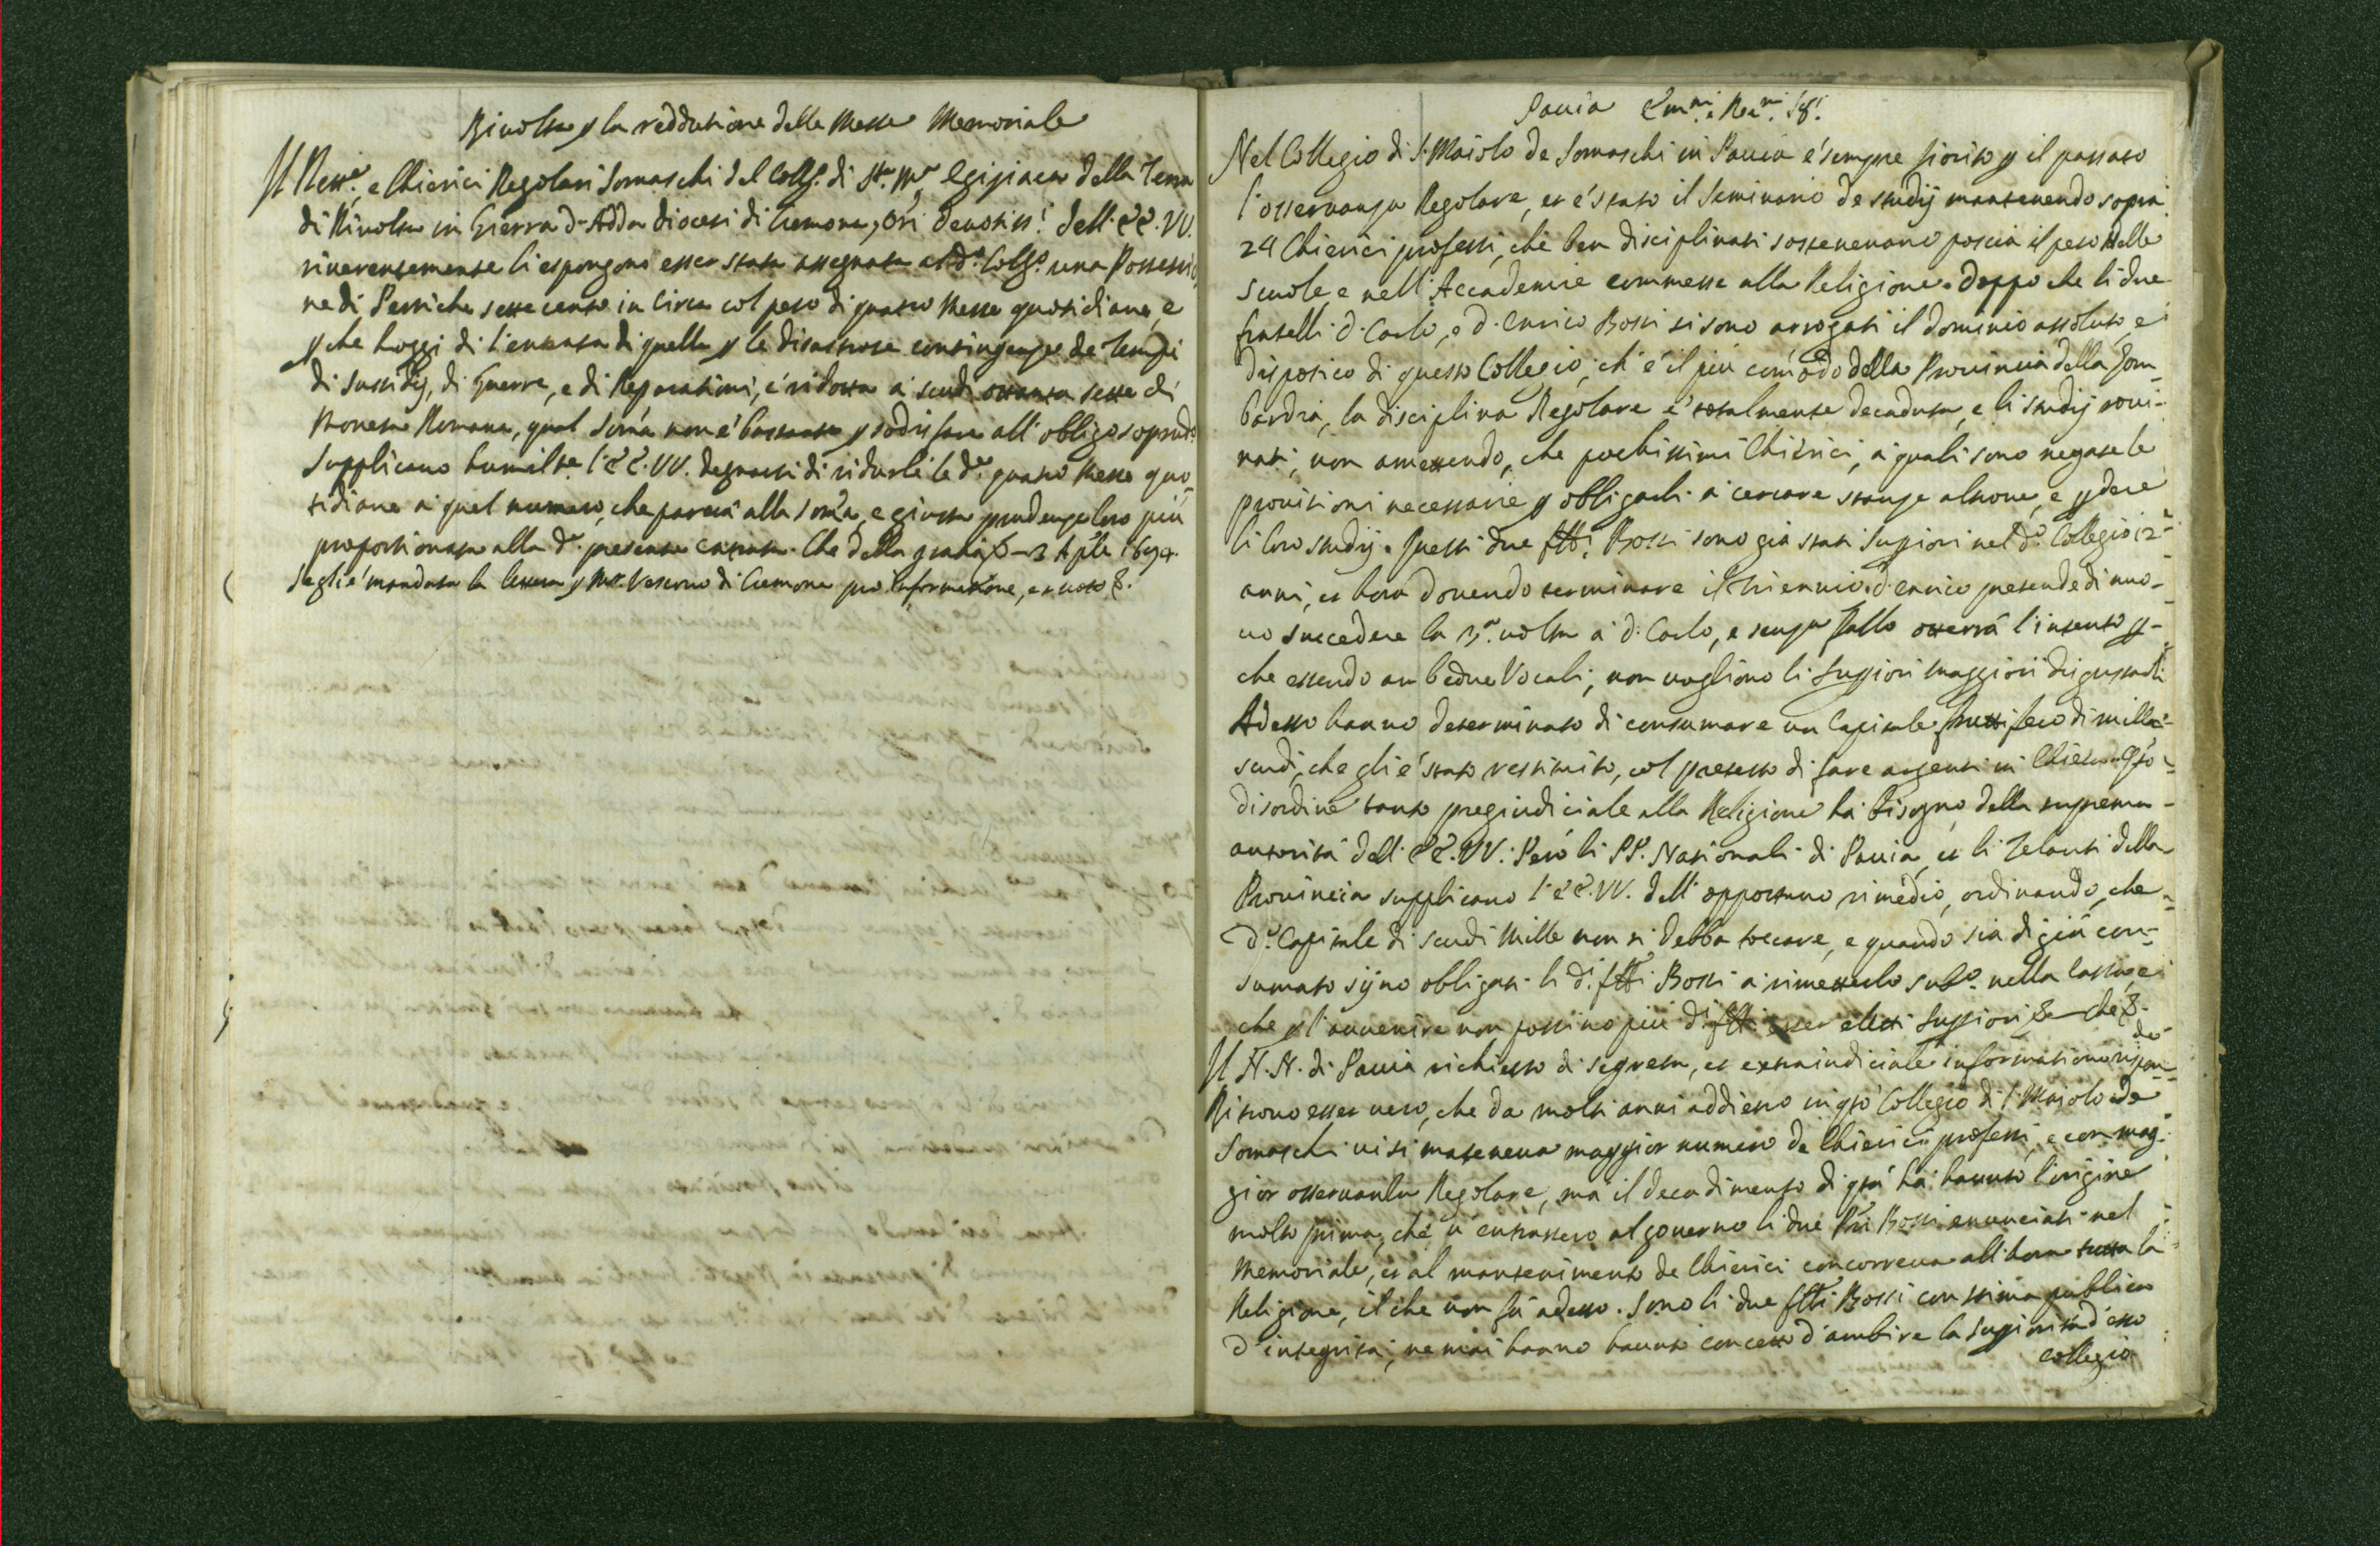 Rivolta p la reddutione delle Messe Memoriale
Il Rett.e, e Chierici Regolari Somaschi del Coll.o di S.ta M.a Egiziaca della Terra
di Rivolta in Gierra d'Adda diocesi di Cremona, Ori devotiss.i dell' EE. VV.
riverentemente li espongono esser stata assegnata al d.o Coll.o una Possessio,
ne di Pertiche sette cento in Circa col peso di quatro Messe quotidiane, e
p che hoggi di l'entrata di quella p le disastrose contingenze de Tempi
di sussidij, di Guerre, e di Reparationi, è ridotta a scudi ottanta sette di
Moneta Romana, qual soma non è bastante p sodisfare all' obligo sopradº
Supplicano humilte l'EE. VV. degnarsi di ridurli le d.e quatro Messe quo,
tidiane a quel numero, che parerà alla somma, e giusta prudenza loro più
proportionata alla d.a presente entrata. Che della gratia &– 3 Aple 1694.
Segli è mandata la lettera p Mr Vescovo di Cremona pro informatione, et voto &.
Pavia Em.mi e Re.mi SS.i
Nel Collegio di S. Maiolo de Somaschi in Pavia è sempre fiorito p il passato
l'osservanza Regolare, et è stato il Seminario de studij mantenendo sopra
24 Chierici professi, che ben disciplinati sostenevano poscia il peso delle
scuole, e nell' Accademie commesse alla Religione. Doppo che li due
fratelli d. Carlo, e d. Enrico Bossi si sono arrogati il dominio assoluto, e
dispotico di questo Collegio, ch' è il più comodo della Provincia della Lom-
bardia, la disciplina Regolare è totalmente decaduta, e li studij rovi-
nati, non amettendo, che pochissimi Chierici, a quali sono negate le
provisioni necessarie p obligarli a cercare stanze altrove, e pdere
li loro studij. Questi due ftti Bossi sono già stati Suppiori nel d.o Collegio 12
anni, et hora dovendo terminare il Triennio d. Enrico pretende di nuo-
vo succedere la 3.a volta a d. Carlo, e senza fallo otterrà l'intento p-
che essendo ambedue Vocali, non vogliono li Suppiori maggiori disgustarli
Adesso hanno determinato di consumare un Capitale fruttifero di mille
scudi, che gli è stato restituito, col pretesto di fare argenti in Chiesa. Qto
disordine tanto pregiudiciale alla Religione ha bisogno della suprema
autorità dell' EE. VV. Però li PP. Nationali di Pavia, et li Zelanti della
Provincia supplicano l'EE. VV. dell' opportuno rimedio, ordinando, che
d.o Capitale di scudi Mille non si debba toccare, e quando sia di già con-
sumato sijno obligati li d.i ftti Bossi a rimetterlo sub.o nella Cassa, e
che p l'avvenire non possino più d.i ftti esser eletti Suppiori &– che &.
Il N. N. di Pavia richiesto di segreta, et extraiudiciale informatione rispon-
de
Ritrovo esser vero, che da molti anni addietro in qto Collegio di S. Maiolo de
Somaschi vi si manteneva maggior numero de Chierici professi, e con mag
gior osservanza Regolare, ma il decadimento di qta ha havuto l'origine
molto prima, che vi entrassero al governo li due Pri Bossi enunciati nel
Memoriale, et al mantenimento de Chierici concorreva all' hora tutta la
Religione, il che non fà adesso. Sono li due ftti Bossi con stima publica
d'integrità, ne mai hanno havuto concetto d'ambire la Suppiorità d'esso
Collegio